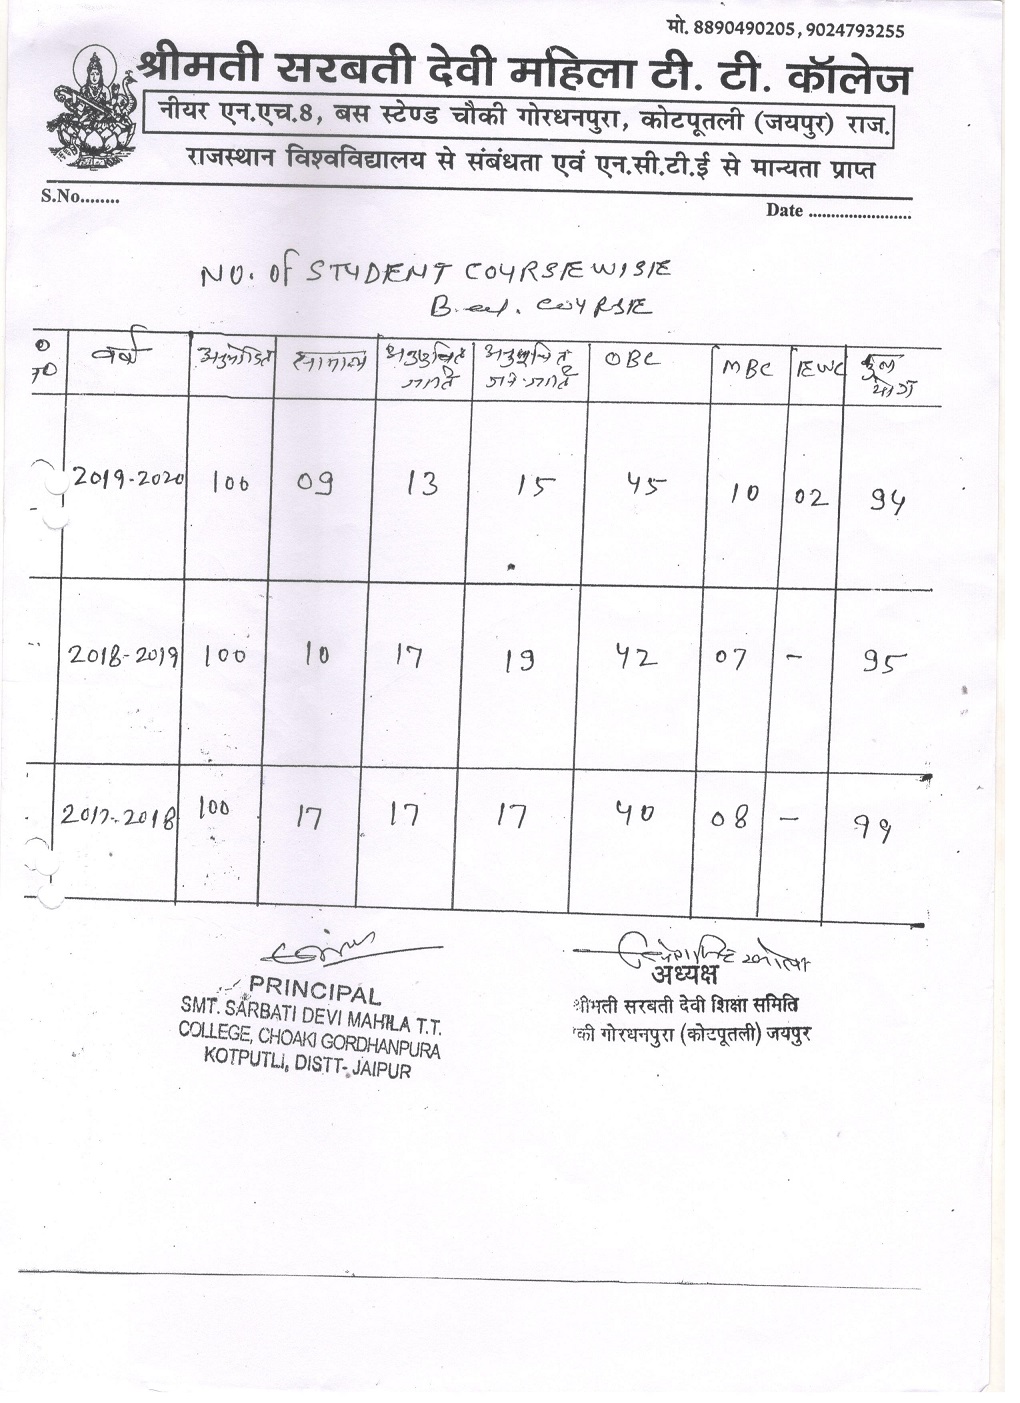 मो. 8890490205, 9024793255
श्रीमती सरबती देवी महिला टी. टी. कॉलेज
नीयर एन.एच.8, बस स्टेण्ड चौकी गोरधनपुरा, कोटपूतली (जयपुर) राज.
राजस्थान विश्वविद्यालय से संबंधता एवं एन.सी.टी.ई से मान्यता प्राप्त
S.No........
Date .......................
NO. of STUDENT COURSE WISE
B.ed. COURSE
वर्ष अनुमोदित सामान्य अनुसूचित जाति अनुसूचित जन जाति OBC MBC EWC कुल योग
2019-2020 100 09 13 15 45 10 02 94
2018-2019 100 10 17 19 42 07 - 95
2017-2018 100 17 17 17 40 08 - 99
PRINCIPAL
SMT. SARBATI DEVI MAHILA T.T.
COLLEGE, CHOAKI GORDHANPURA
KOTPUTLI, DISTT-JAIPUR
अध्यक्ष
श्रीमती सरबती देवी शिक्षा समिति
की गोरधनपुरा (कोटपूतली) जयपुर